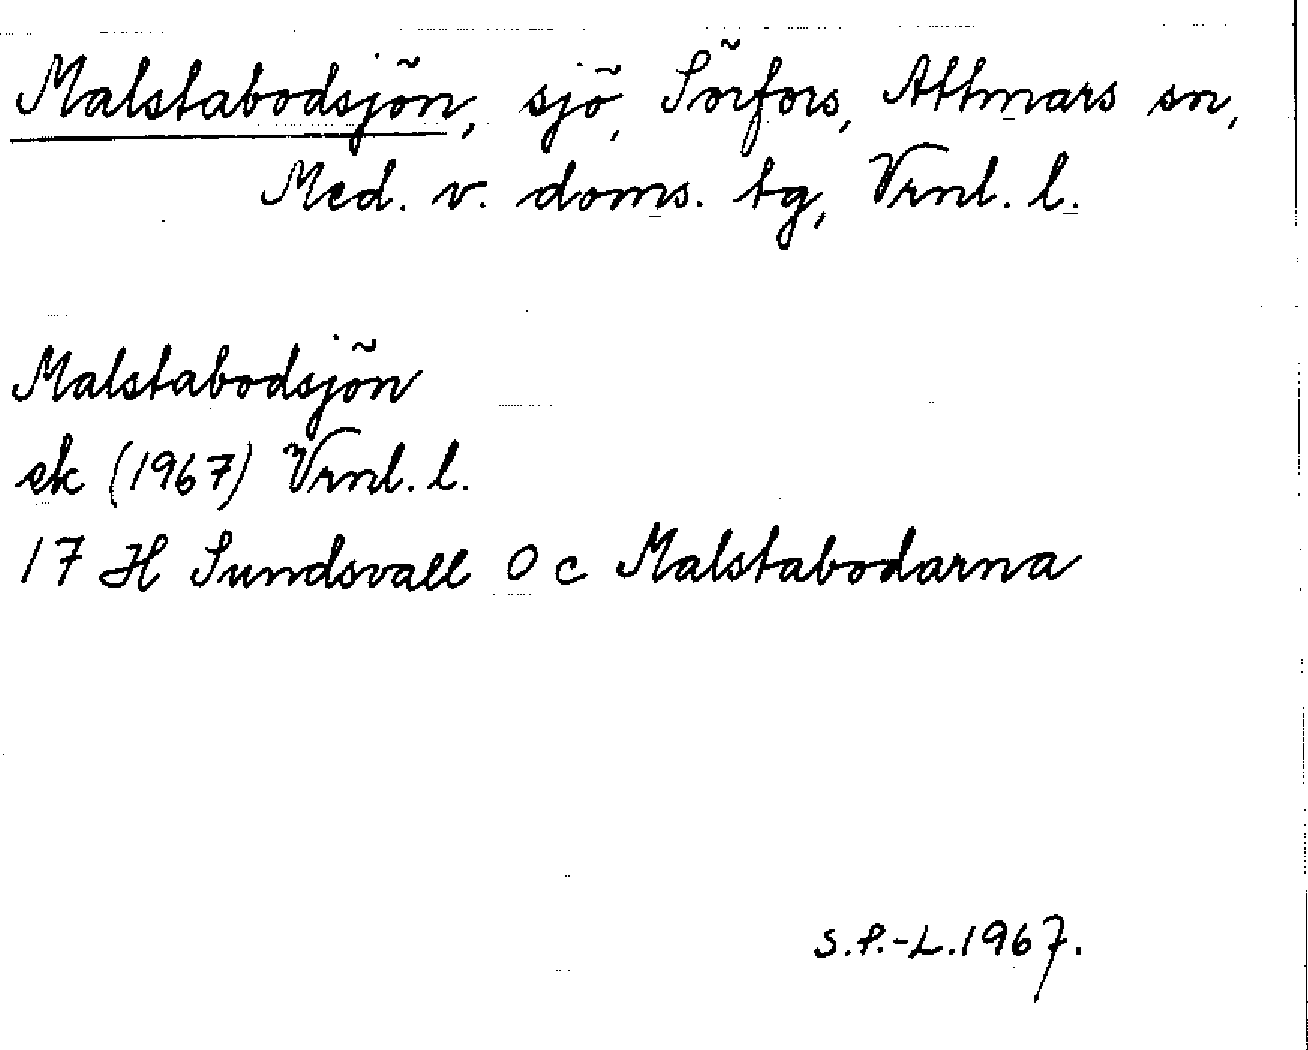 Malstabodsjön, sjö, Sörfors, Attmars sn,
Med. v. doms. tg, Vrnl. l.
Malstabodsjön
ek (1967) Vrnl. l.
17 H Sundsvall 0 c Malstabodarna
S.P.-L.1967.